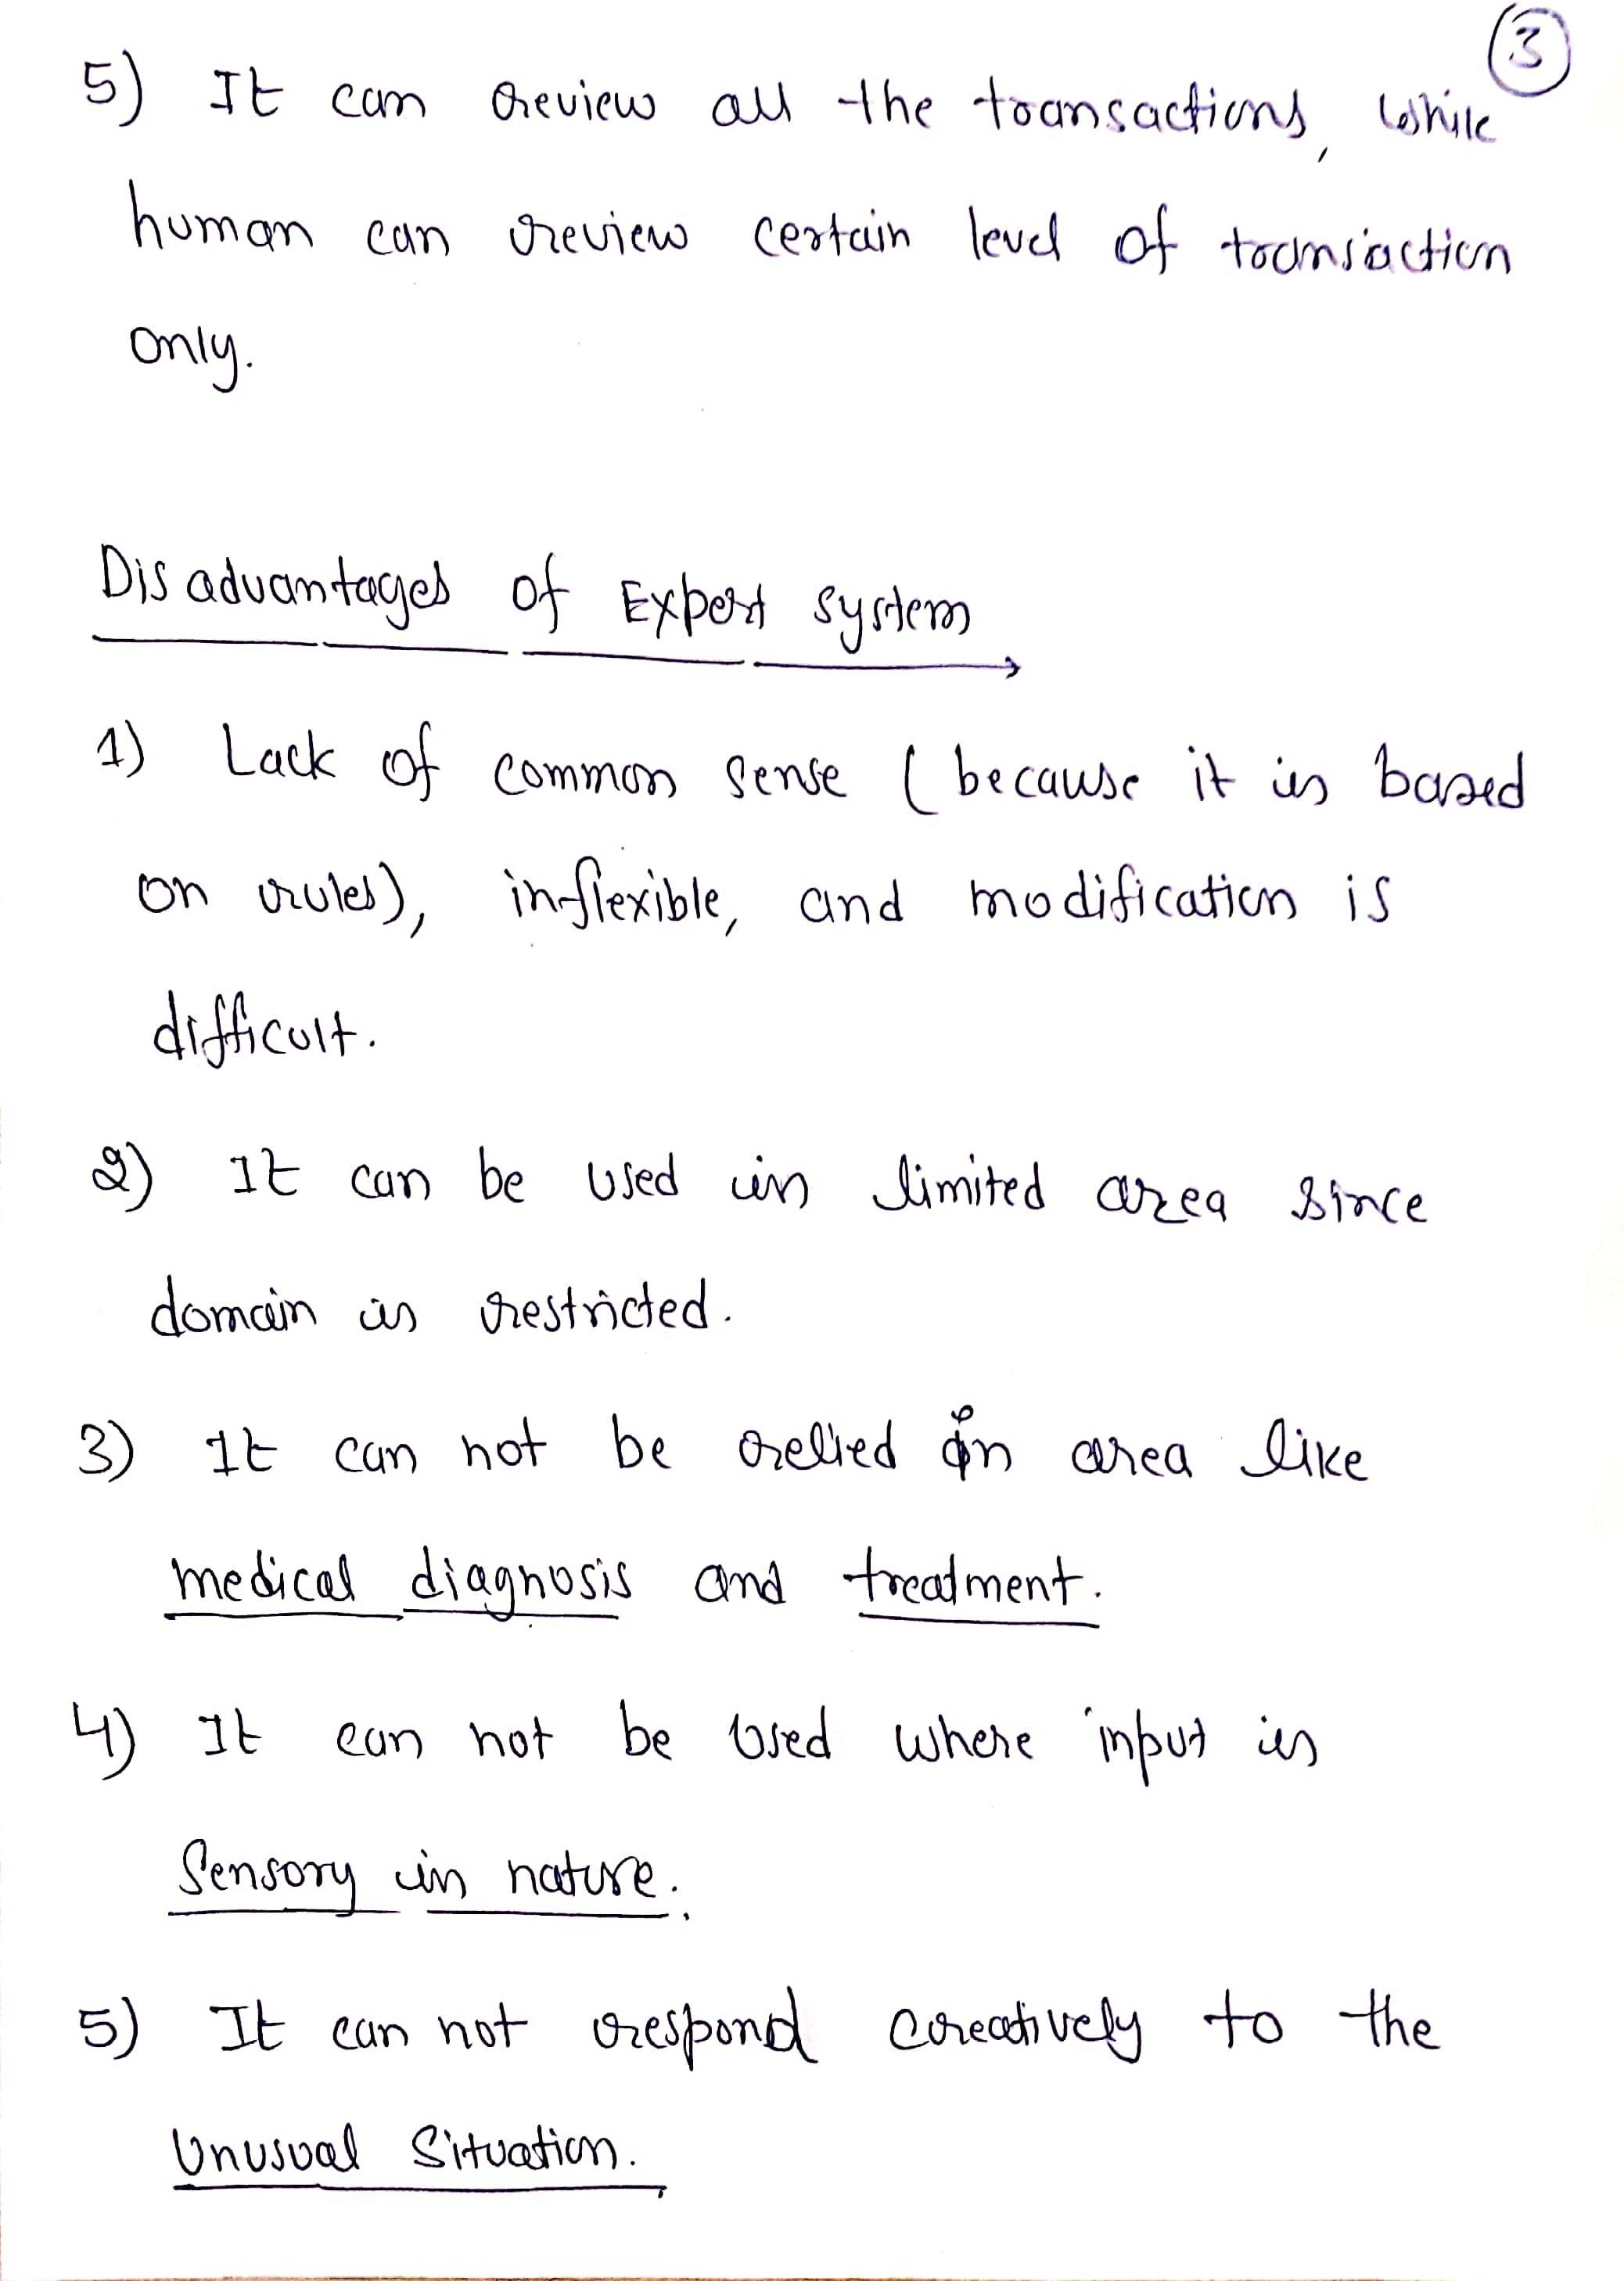 3
5) It can review all the transactions, while
human can review certain level of transaction
only.
Disadvantages of Expert system
1) Lack of common sense (because it is based
on rules), inflexible, and modification is
difficult.
2) It can be used in limited area since
domain is restricted.
3) It can not be relied in area like
medical diagnosis and treatment.
4) It can not be used where input is
sensory in nature.
5) It can not respond creatively to the
Unusual Situation.